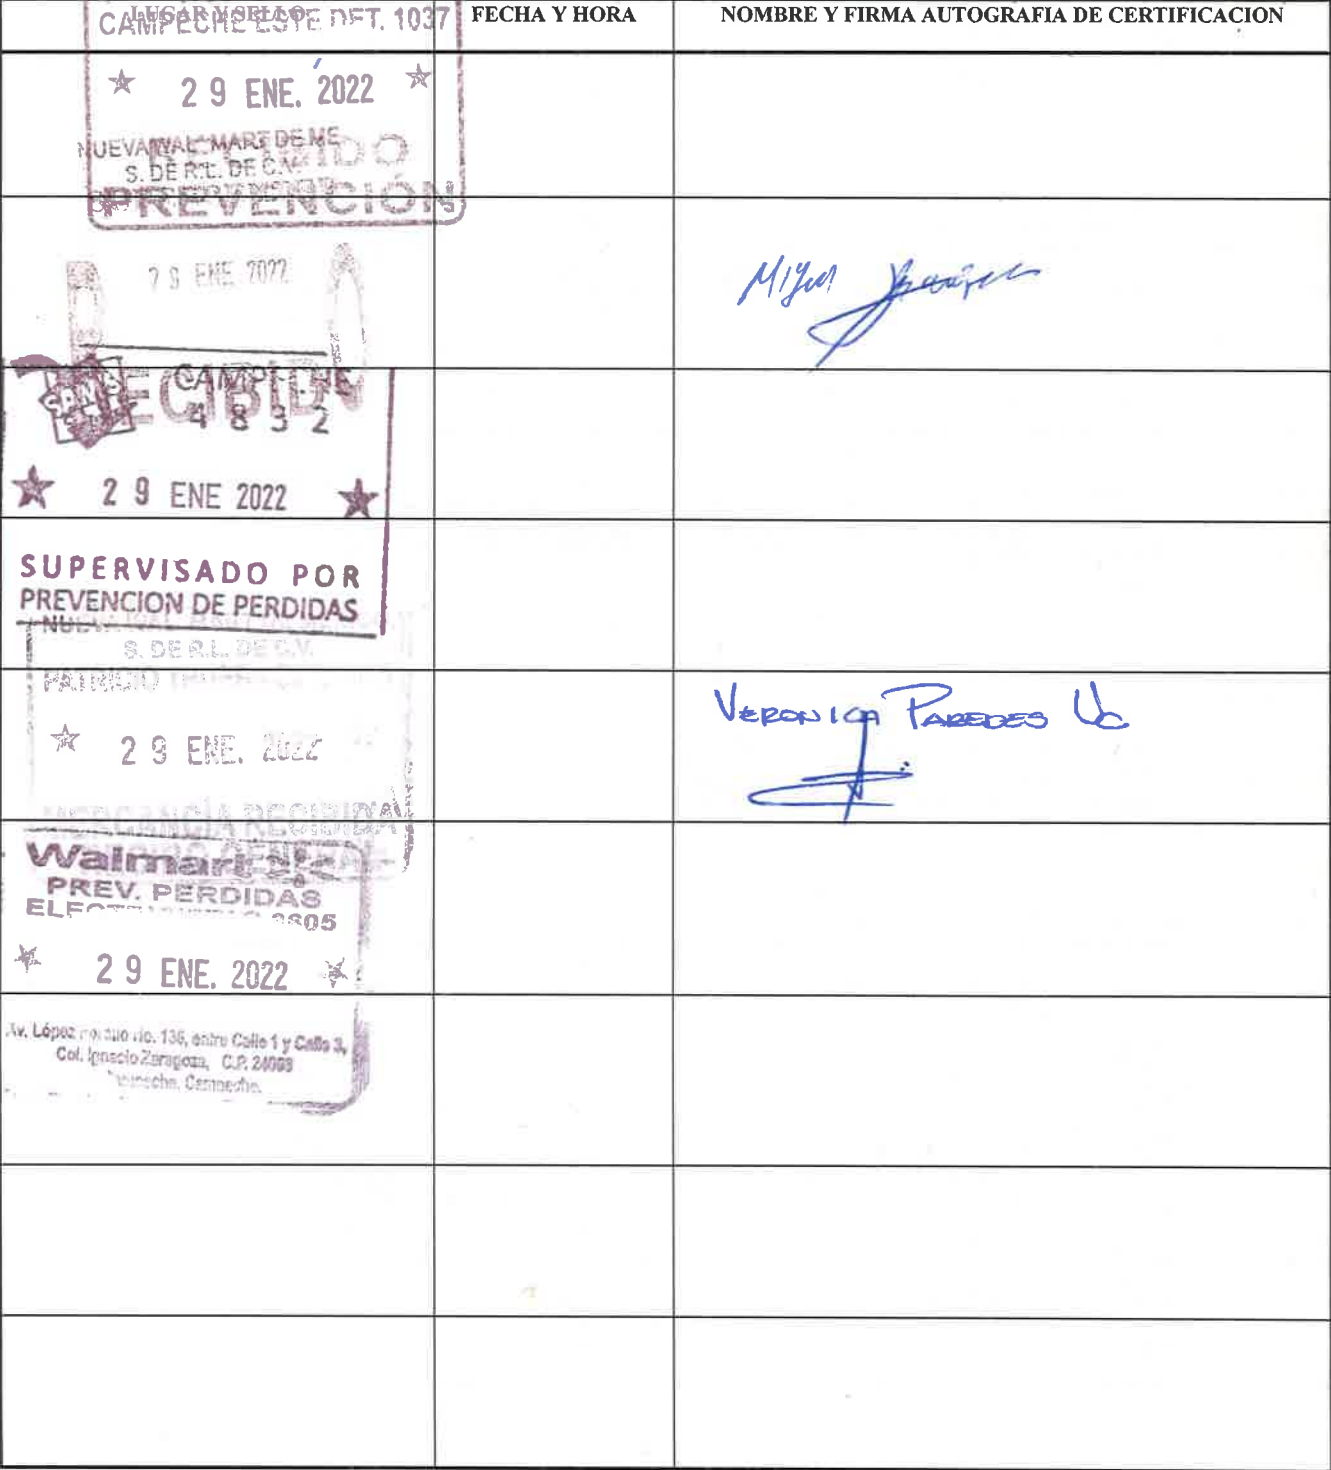 LUGAR Y SELLO FECHA Y HORA NOMBRE Y FIRMA AUTOGRAFIA DE CERTIFICACION
CAMPECHE ESTE DET. 1037
29 ENE. 2022
NUEVA WAL MART DE ME
S. DE R.L. DE C.V.
PREVENCIÓN
29 ENE 2022
Miguel
CAMPECHE
4832
SAM'S
29 ENE 2022
SUPERVISADO POR
PREVENCION DE PERDIDAS
S. DE R.L. DE C.V.
PATRICIO
VERONICA PAREDES UC
29 ENE. 2022
MERCANCÍA RECIBIDA
GENERAL
Walmart
PREV. PERDIDAS
29 ENE. 2022
Av. López No. 136, entre Calle 1 y Calle 3,
Col. Ignacio Zaragoza, C.P.
Campeche, Campeche.